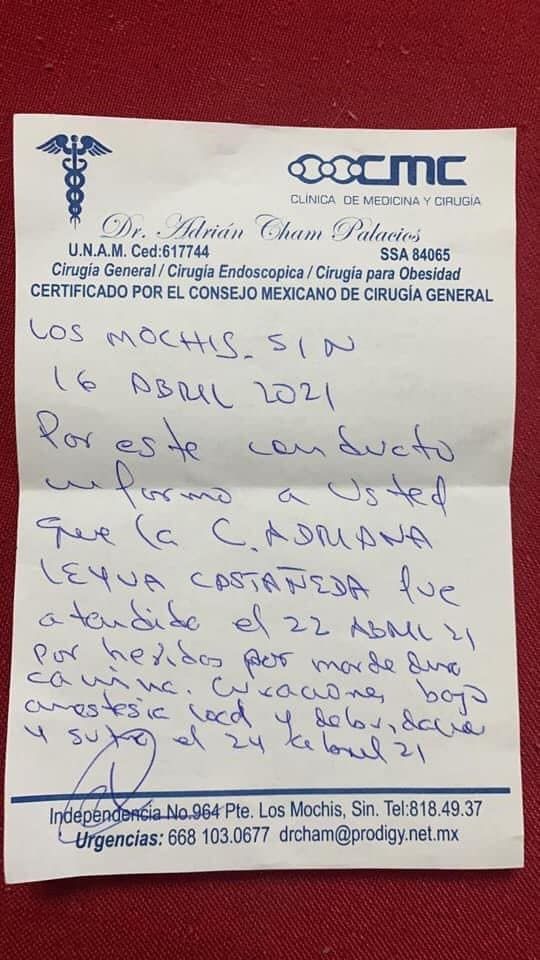 CMC
CLÍNICA DE MEDICINA Y CIRUGÍA
Dr. Adrián Cham Palacios
U.N.A.M. Ced:617744 SSA 84065
Cirugía General / Cirugía Endoscopica / Cirugía para Obesidad
CERTIFICADO POR EL CONSEJO MEXICANO DE CIRUGÍA GENERAL
LOS MOCHIS. SIN
16 ABRIL 2021
Por este conducto
informo a Usted
que la C. ADRIANA
LEYVA CASTAÑEDA fue
atendida el 22 ABRIL 21
por heridas por mordedura
canina. Curaciones bajo
anestesia local y
y sutura el 24 21
Independencia No.964 Pte. Los Mochis, Sin. Tel:818.49.37
Urgencias: 668 103.0677 drcham@prodigy.net.mx